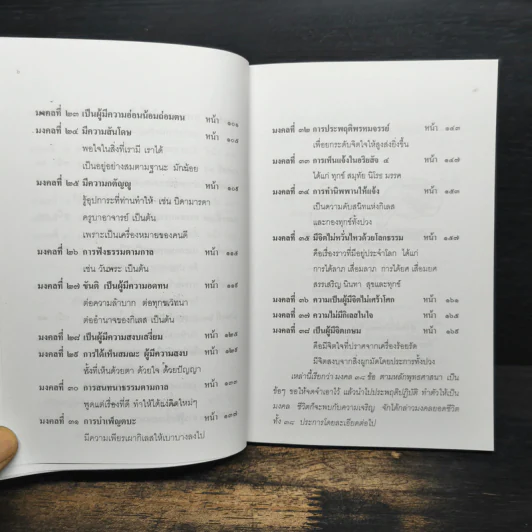 มงคลที่ ๒๓ เป็นผู้มีความอ่อนน้อมถ่อมตน หน้า ๑๐๑
มงคลที่ ๒๔ มีความสันโดษ หน้า ๑๐๕
พอใจในสิ่งที่เรามี เราได้
เป็นอยู่อย่างสมตามฐานะ มักน้อย
มงคลที่ ๒๕ มีความกตัญญู หน้า ๑๐๙
รู้อุปการะที่ท่านทำให้ เช่น บิดามารดา
ครูบาอาจารย์ เป็นต้น
เพราะเป็นเครื่องหมายของคนดี
มงคลที่ ๒๖ การฟังธรรมตามกาล หน้า ๑๑๕
เช่น วันพระ เป็นต้น
มงคลที่ ๒๗ ขันติ เป็นผู้มีความอดทน หน้า ๑๑๙
ต่อความลำบาก ต่อทุกขเวทนา
ต่ออำนาจของกิเลส เป็นต้น
มงคลที่ ๒๘ เป็นผู้มีความสงบเสงี่ยม หน้า ๑๒๕
มงคลที่ ๒๙ การได้เห็นสมณะ ผู้มีความสงบ หน้า ๑๒๙
ทั้งที่เห็นด้วยตา ด้วยใจ ด้วยปัญญา
มงคลที่ ๓๐ การสนทนาธรรมตามกาล หน้า ๑๓๓
พูดแต่เรื่องที่ดี ทำให้ได้แง่คิดใหม่ๆ
มงคลที่ ๓๑ การบำเพ็ญตบะ หน้า ๑๓๗
มีความเพียรเผากิเลสให้เบาบางลงไป
มงคลที่ ๓๒ การประพฤติพรหมจรรย์ หน้า ๑๔๓
เพื่อยกระดับจิตใจให้สูงส่งยิ่งขึ้น
มงคลที่ ๓๓ การเห็นแจ้งในอริยสัจ ๔ หน้า ๑๔๗
ได้แก่ ทุกข์ สมุทัย นิโรธ มรรค
มงคลที่ ๓๔ การทำนิพพานให้แจ้ง หน้า ๑๕๓
เป็นความดับสนิทแห่งกิเลส
และกองทุกข์ทั้งปวง
มงคลที่ ๓๕ มีจิตไม่หวั่นไหวด้วยโลกธรรม หน้า ๑๕๗
คือเรื่องราวที่มีอยู่ประจำโลก ได้แก่
การได้ลาภ เสื่อมลาภ การได้ยศ เสื่อมยศ
สรรเสริญ นินทา สุขและทุกข์
มงคลที่ ๓๖ ความเป็นผู้มีจิตไม่เศร้าโศก หน้า ๑๖๑
มงคลที่ ๓๗ ความไม่มีกิเลสในใจ หน้า ๑๖๕
มงคลที่ ๓๘ เป็นผู้มีจิตเกษม หน้า ๑๖๙
คือมีจิตใจที่ปราศจากเครื่องร้อยรัด
มีจิตสงบจากสิ่งผูกมัดโดยประการทั้งปวง
เหล่านี้เรียกว่า มงคล ๓๘ ข้อ ตามหลักพุทธศาสนา เป็น
ข้อๆ ขอให้จดจำเอาไว้ แล้วนำไปประพฤติปฏิบัติ ทำตัวให้เป็น
มงคล ชีวิตก็จะพบกับความเจริญ จักได้กล่าวมงคลยอดชีวิต
ทั้ง ๓๘ ประการโดยละเอียดต่อไป